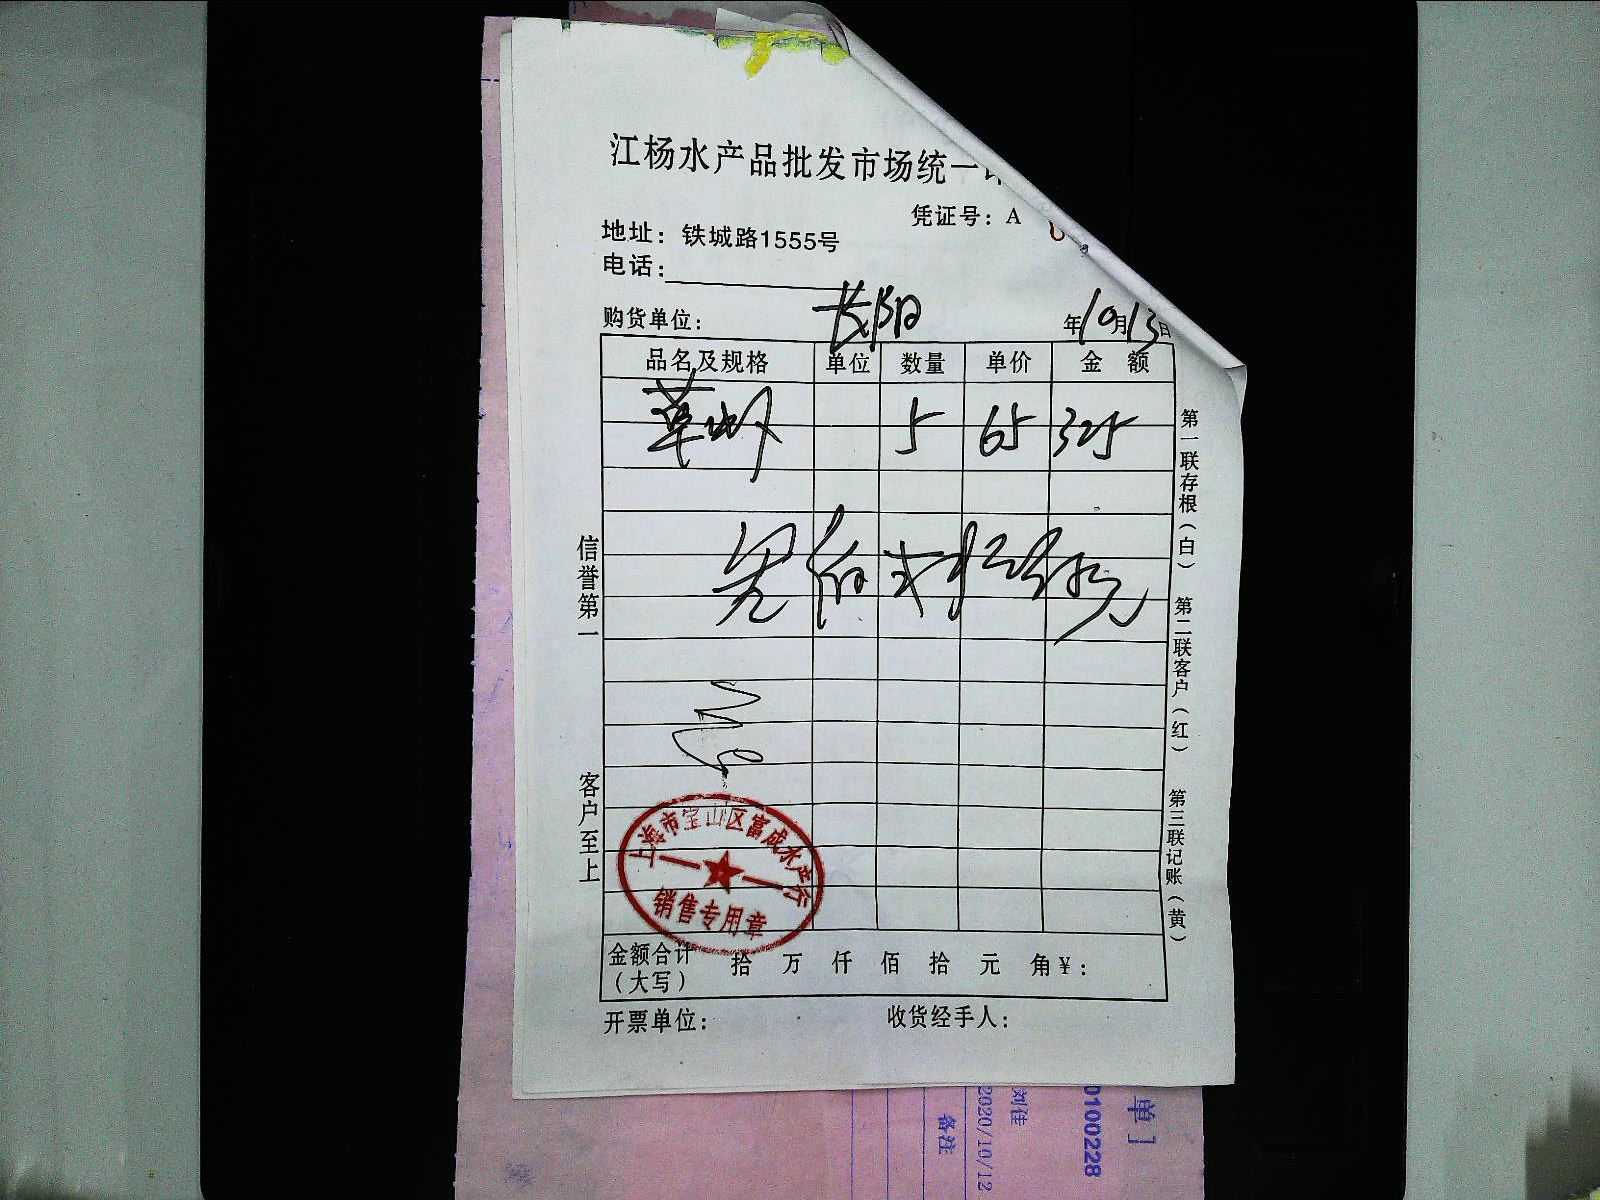 江杨水产品批发市场统一
凭证号：A
地址：铁城路1555号
电话：
购货单位：长阳 年10月13日
品名及规格 单位 数量 单价 金额
草虾 5 65 325
叁佰贰拾伍元
信誉第一
客户至上
第一联存根（白） 第二联客户（红） 第三联记账（黄）
上海市宝山区富成水产行
销售专用章
金额合计 拾 万 仟 佰 拾 元 角¥：
（大写）
开票单位： 收货经手人：
单
0100228
刘佳
2020/10/12
备注